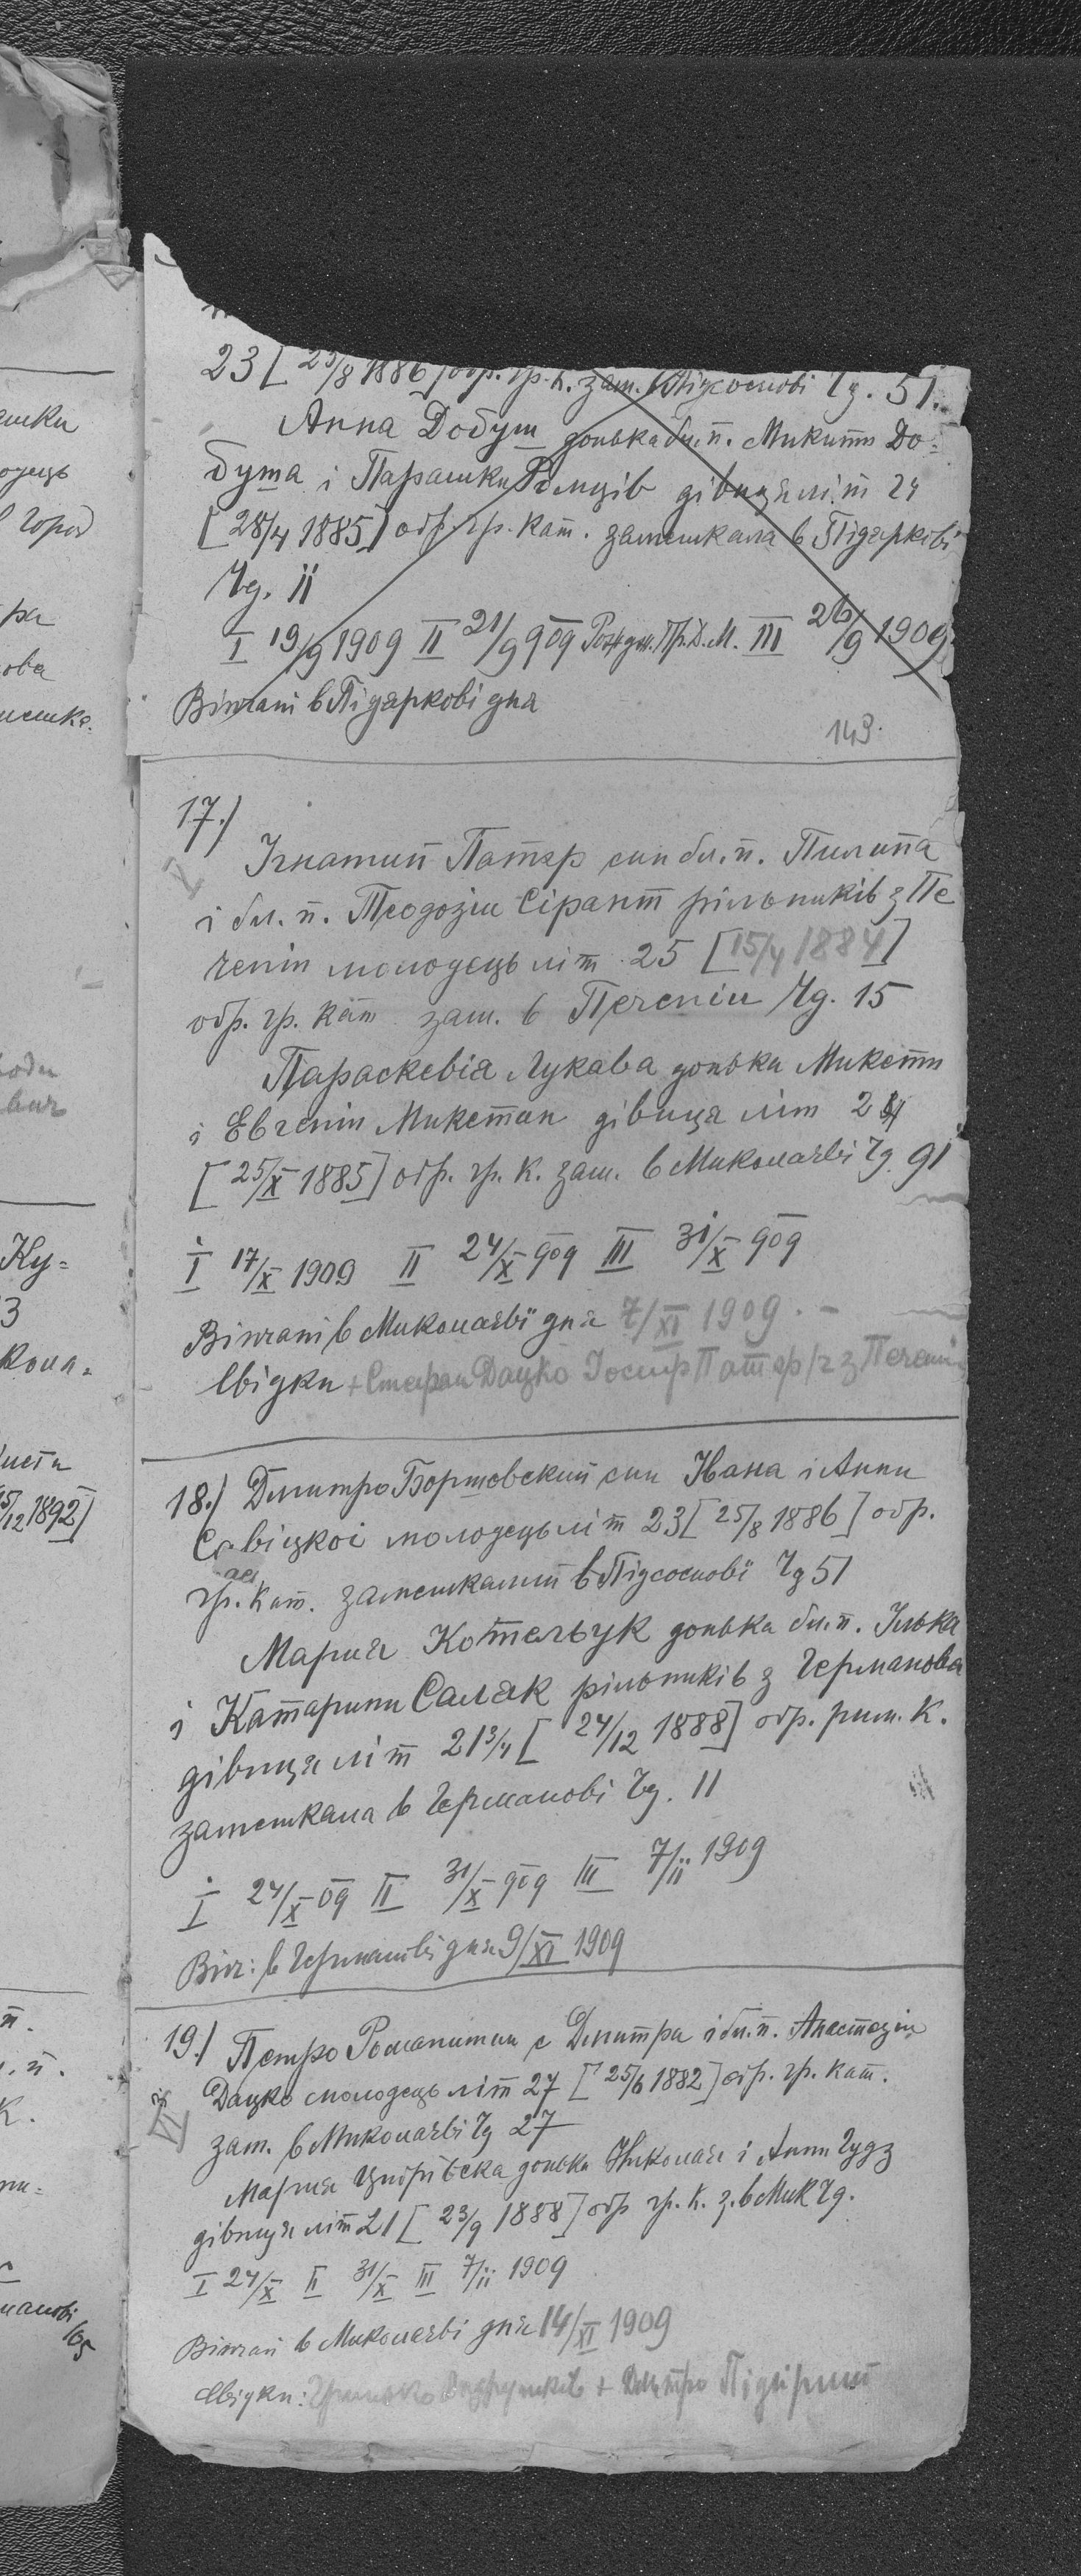 23 [25/8 1886] обр. гр. к. зам. в Підсоснові Чд. 51.
Анна Добуш донька бл. п. Микити До=
буша і Парашки дівиця літ 24
[28/4 1885] обр. гр. кат. замешкала в Підяркові
Чд. 11
I 19/9 1909 II 21/9 909 Рожд. Пр. Д. М. III 26/9 1909
Вінчані в Підяркові дня
143.
17.)
Ігнатий Патер син бл. п. Пилипа
і бл. п. Теодозіи Сірант рільників з Пе
ченіи молодець літ 25 [15/4 1884]
обр. гр. кат зам. в Печеніи Чд. 15
Параскевія Лукава донька Микити
і Евгеніи Микетин дівиця літ 24
[25/X 1885] обр. гр. к. зам. в Миколаєві Чд. 91
I 17/X 1909 II 24/X 909 III 31/X 909
Вінчані в Миколаєві дня 7/XI 1909. -
Свідки + Стефан Дацко Йосиф Патер з Печеніи
18.) Дмитро Борщовский син Ивана і Анни
Савіцкої молодець літ 23 [25/8 1886] обр.
гр. кат. замешкалий в Підсоснові Чд 51
Мария Котельчук донька бл. п. Ілька
і Катарини Салак рільників з Германова
дівиця літ 21 3/4 [24/12 1888] обр. рим. к.
замешкала в Германові Чд. 11
I 24/X 09 II 31/X 909 III 7/11 1909
Вінч: в Германові дня 9/XI 1909
19.) Петро Романишин с Дмитра і бл. п. Анастазіи
Дацко молодець літ 27 [25/6 1882] обр. гр. кат.
зам. в Миколаєві Чд 27
Мария донька Николая і Анни Гудз
дівиця літ 21 [23/9 1888] обр гр. к. з. в Мик Чд.
I 24/X II 31/X III 7/11 1909
Вінчані в Миколаєві дня 14/XI 1909
Свідки: + Дмитро Підгірний